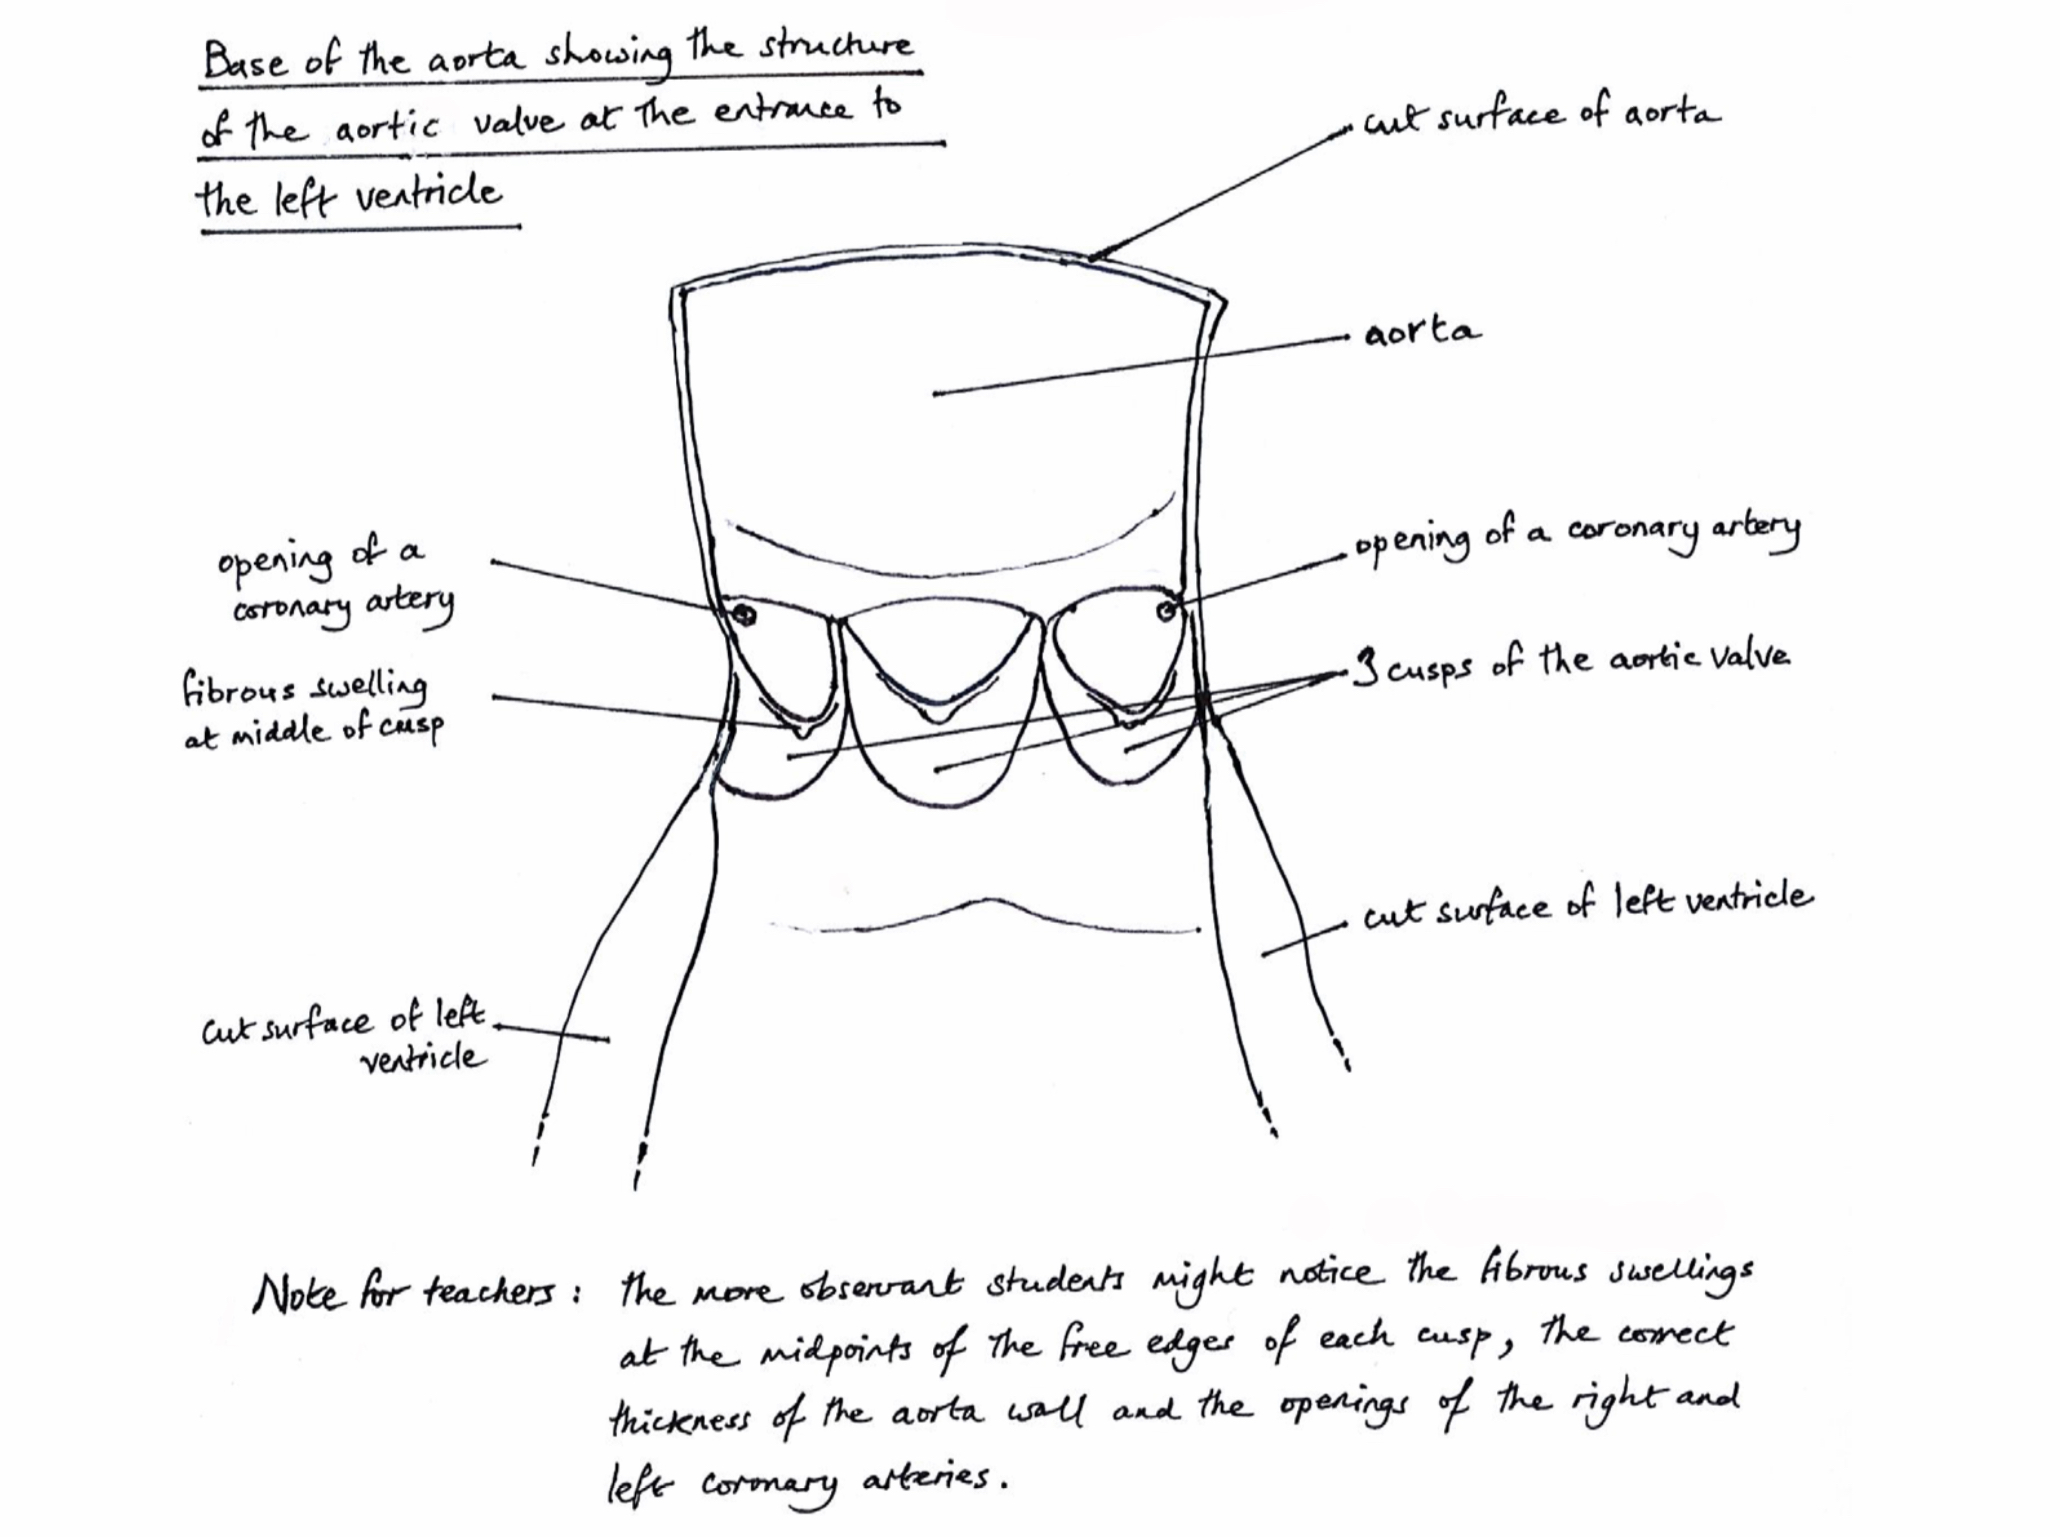 Base of the aorta showing the structure
of the aortic valve at the entrance to
the left ventricle
cut surface of aorta
aorta
opening of a
coronary artery
opening of a coronary artery
fibrous swelling
at middle of cusp
3 cusps of the aortic valve
cut surface of left ventricle
cut surface of left
ventricle
Note for teachers: the more observant students might notice the fibrous swellings
at the midpoints of the free edges of each cusp, the correct
thickness of the aorta wall and the openings of the right and
left coronary arteries.